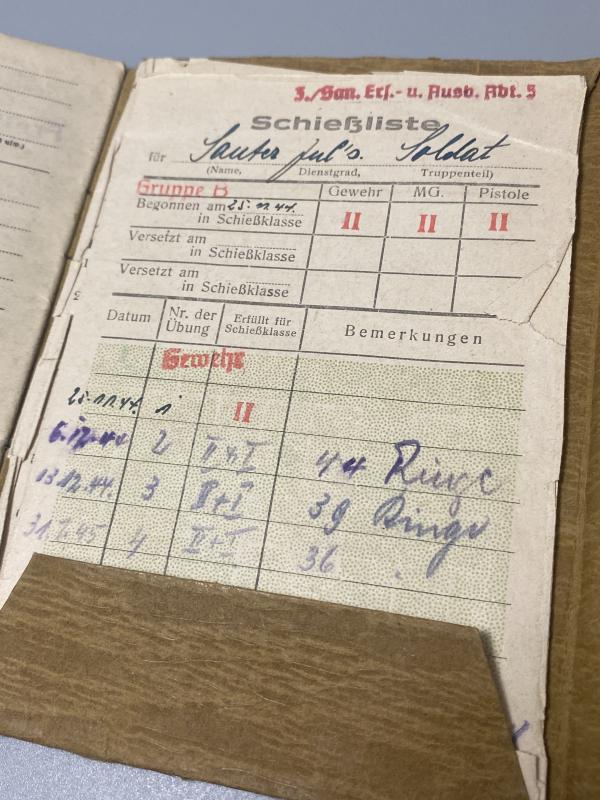 3./San. Ers.- u. Ausb. Abt. 5
Schießliste
für Sauter Jul's. Soldat
(Name, Dienstgrad, Truppenteil)
Gruppe B Gewehr MG. Pistole
Begonnen am 25.11.44.
in Schießklasse II II II
Versetzt am
in Schießklasse
Versetzt am
in Schießklasse
Datum Nr. der Übung Erfüllt für Schießklasse Bemerkungen
Gewehr
25.11.44. 1 II
6.12.44 2 II+I 44 Ringe
13.12.44. 3 II+I 39 Ringe
31.1.45 4 II+I 36